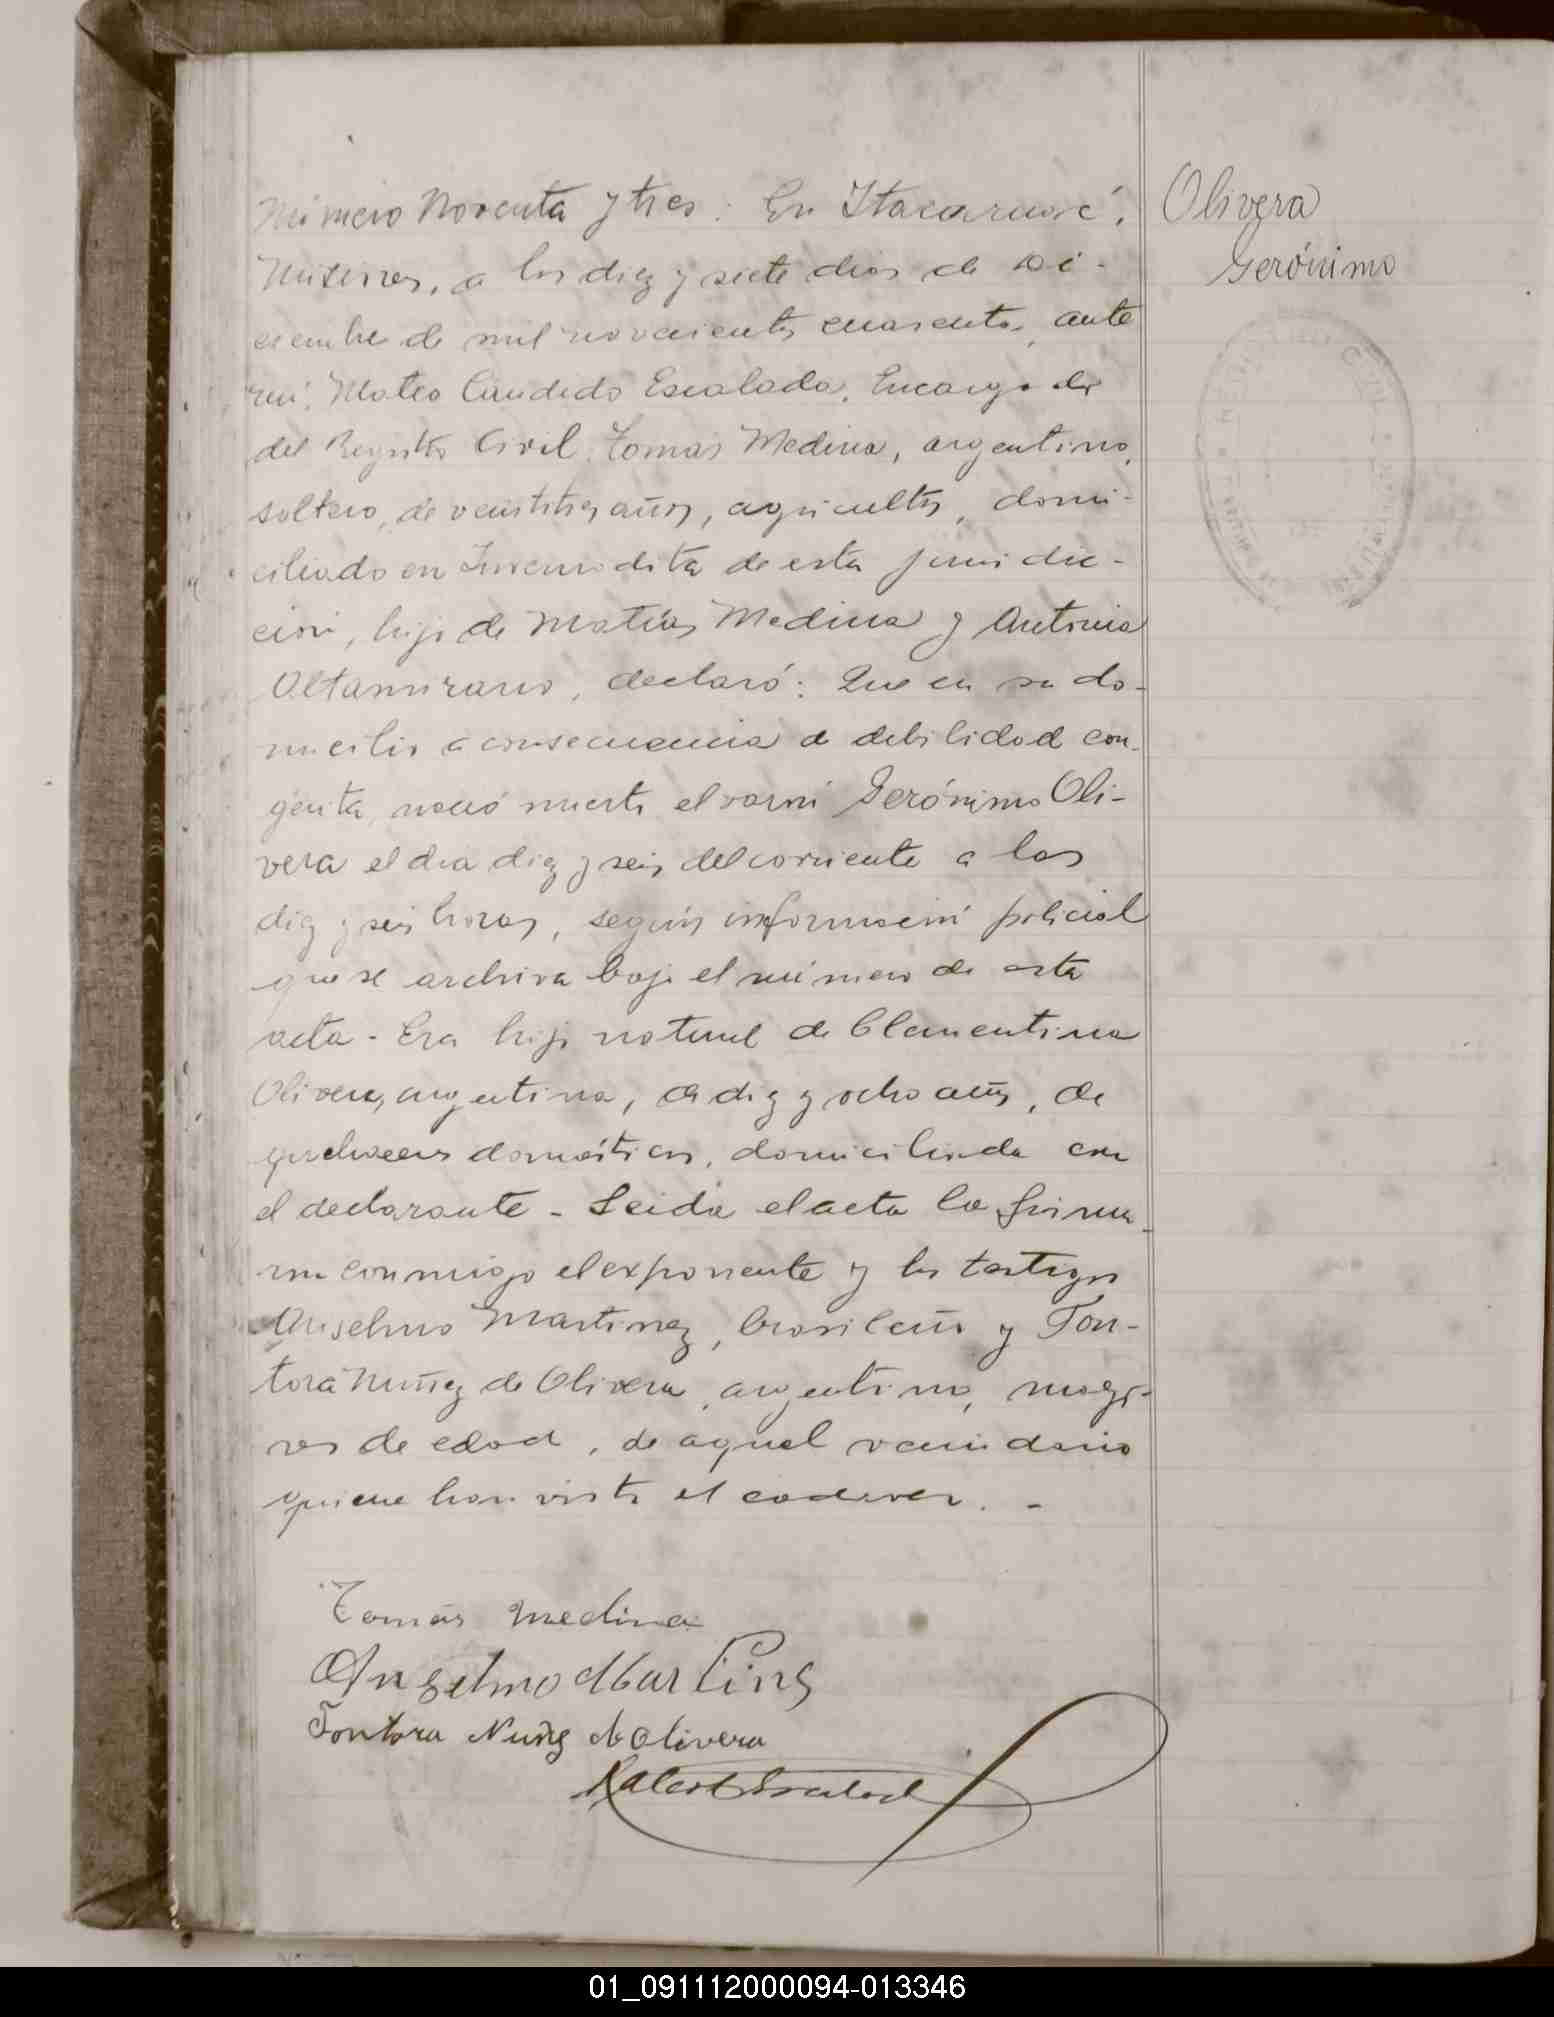 Número Noventa y tres: En Itacaruaré,
Misiones, a los diez y siete dias de Di-
ciembre de mil novecientos cuarenta, ante
mí, Mateo Cándido Escalada, Encargado
del Registro Civil, Tomás Medina, argentino,
soltero, de veintitres años, agricultor, domi-
ciliado en Invernadita de esta jurisdic-
ción, hijo de Matías Medina y Antonia
Altamirano, declaró: Que en su do-
micilio a consecuencia de debilidad con-
génita, nació muerto el varón Gerónimo Oli-
vera el dia diez y seis del corriente a las
diez y seis horas, según información policial
que se archiva bajo el número de esta
acta - Era hijo natural de Clementina
Olivera, argentina, de diez y ocho años, de
quehaceres domésticos, domiciliada con
el declarante - Leida el acta la firma-
ron conmigo el exponente y los testigos
Anselmo Martinez, brasileño y Fon-
tora Nuñez de Olivera, argentino, mayo-
res de edad, de aquel vecindario
quiene han visto el cadaver. -
Tomás Medina
Anselmo Martins
Fontora Nuñz de Olivera
Olivera
Gerónimo
01_091112000094-013346